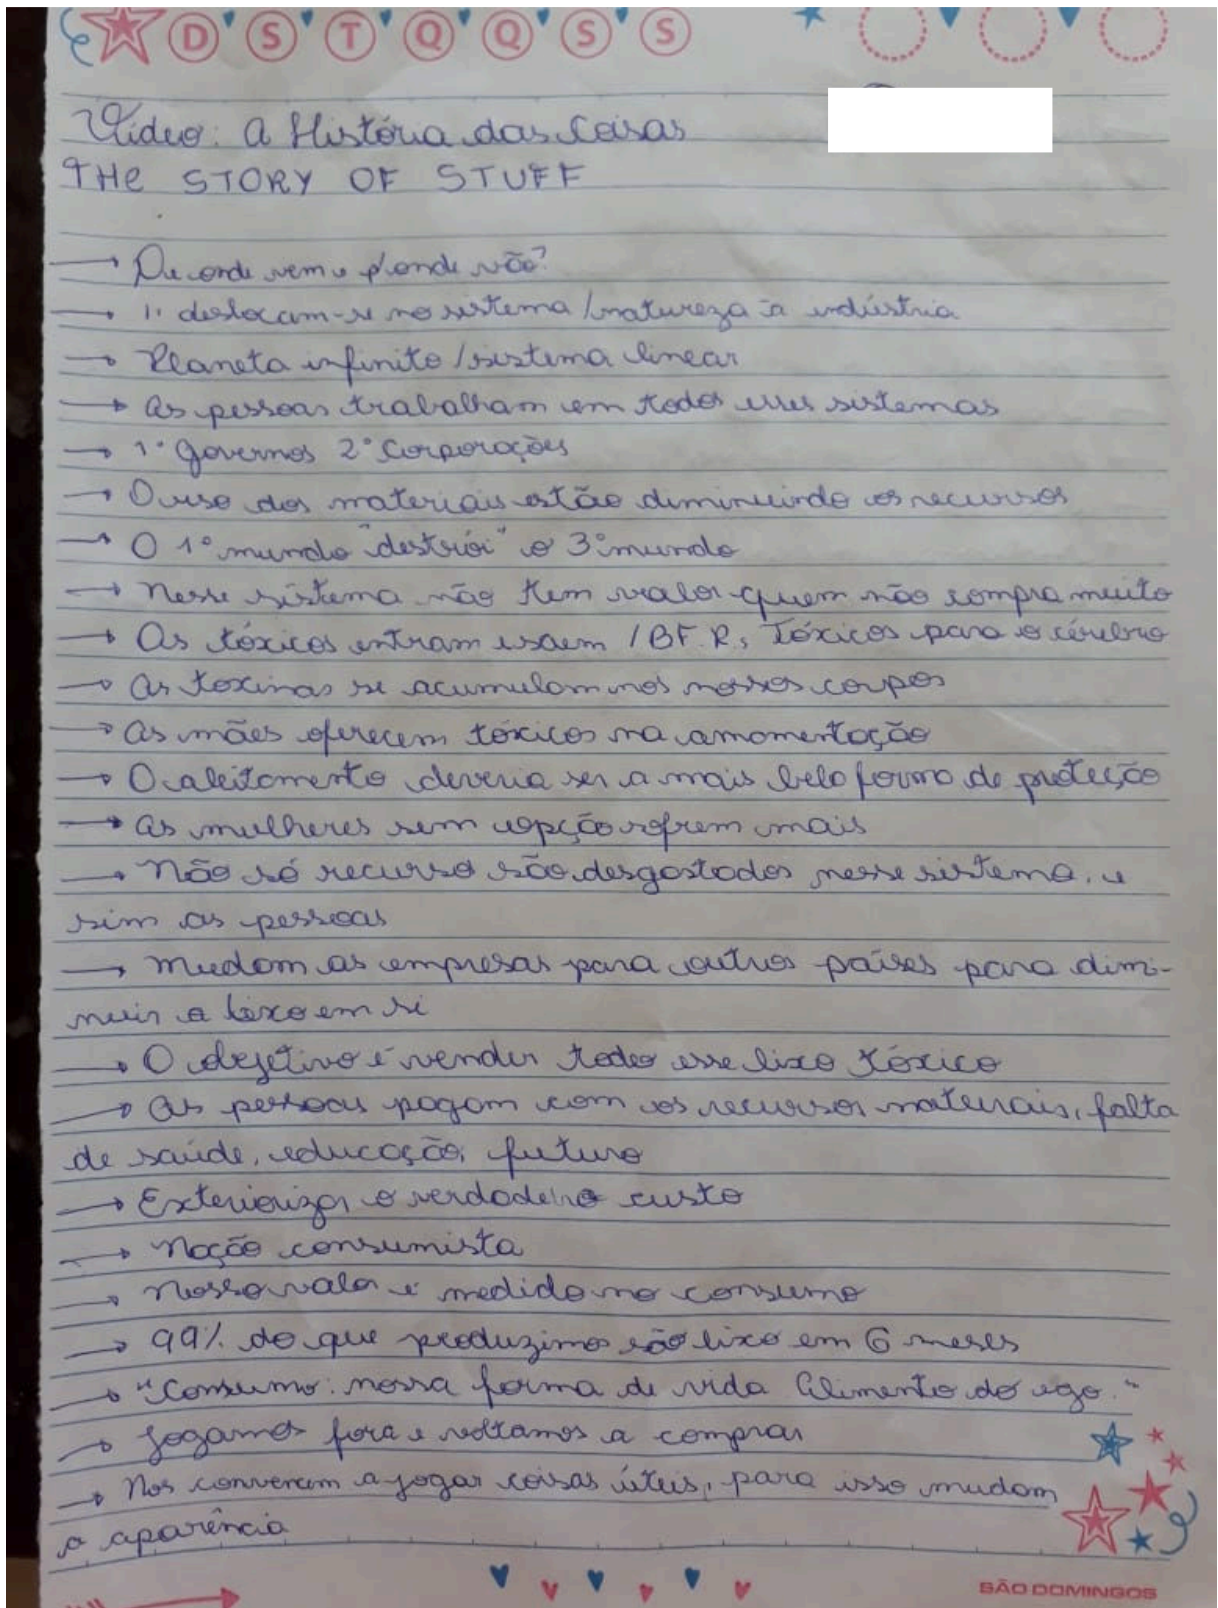 D S T Q Q S S
Vídeo: A História das Coisas
THE STORY OF STUFF
→ De onde vem e p'onde vão?
→ 1. deslocam-se no sistema / natureza à indústria
→ Planeta infinito / sistema linear
→ As pessoas trabalham em todos esses sistemas
→ 1° Governos 2° Corporações
→ O uso dos materiais estão diminuindo os recursos
→ O 1° mundo "destrói" o 3° mundo
→ Nesse sistema não tem valor quem não compra muito
→ Os tóxicos entram e saem / BF.R, Tóxicos para o cérebro
→ As toxinas se acumulam nos nossos corpos
→ As mães oferecem tóxicos na amamentação
→ O aleitamento deveria ser a mais bela forma de proteção
→ As mulheres sem opção sofrem mais
→ Não só recurso são desgastados nesse sistema, e
sim as pessoas
→ Mudam as empresas para outros países para dimi-
nuir o lixo em si
→ O objetivo é vender todo esse lixo tóxico
→ As pessoas pagam com os recursos naturais, falta
de saúde, educação, futuro
→ Exteriorizar o verdadeiro custo
→ Nação consumista
→ Nosso valor é medido no consumo
→ 99% do que produzimos são lixo em 6 meses
→ "Consumo: nossa forma de vida Alimento do ego."
→ Jogamos fora e voltamos a comprar
→ Nos convencem a jogar coisas úteis, para isso mudam
a aparência
SÃO DOMINGOS